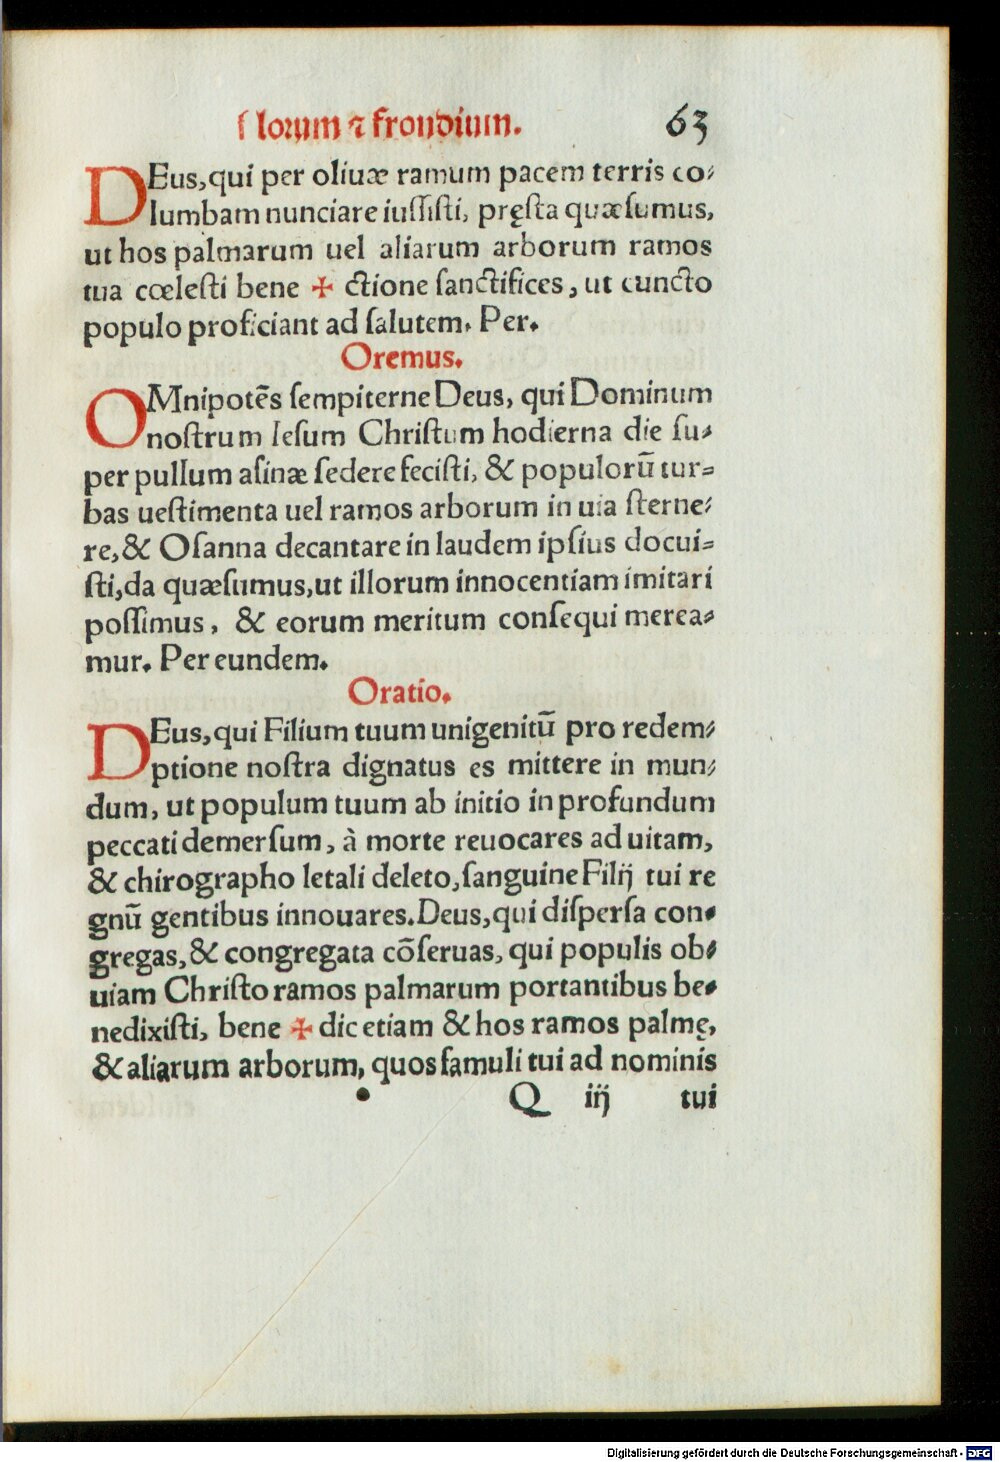 florum ⁊ frondium. 63
DEus, qui per oliuæ ramum pacem terris co⸗
lumbam nunciare iuſſiſti, pręſta quæſumus,
ut hos palmarum uel aliarum arborum ramos
tua cœleſti bene ✠ ctione ſanctifices, ut cuncto
populo proficiant ad ſalutem. Per.
Oremus.
OMnipotēs ſempiterne Deus, qui Dominum
noſtrum Ieſum Chriſtum hodierna die ſu⸗
per pullum aſinæ ſedere feciſti, & populorū tur⸗
bas ueſtimenta uel ramos arborum in uia ſterne⸗
re, & Oſanna decantare in laudem ipſius docui⸗
ſti, da quæſumus, ut illorum innocentiam imitari
poſſimus, & eorum meritum conſequi merea⸗
mur. Per eundem.
Oratio.
DEus, qui Filium tuum unigenitū pro redem⸗
ptione noſtra dignatus es mittere in mun⸗
dum, ut populum tuum ab initio in profundum
peccati demerſum, à morte reuocares ad uitam,
& chirographo letali deleto, ſanguine Filij tui re
gnū gentibus innouares. Deus, qui diſperſa con⸗
gregas, & congregata cōſeruas, qui populis ob⸗
uiam Chriſto ramos palmarum portantibus be⸗
nedixiſti, bene ✠ dic etiam & hos ramos palmę,
& aliarum arborum, quos famuli tui ad nominis
Q iij tui
Digitalisierung gefördert durch die Deutsche Forschungsgemeinschaft - DFG